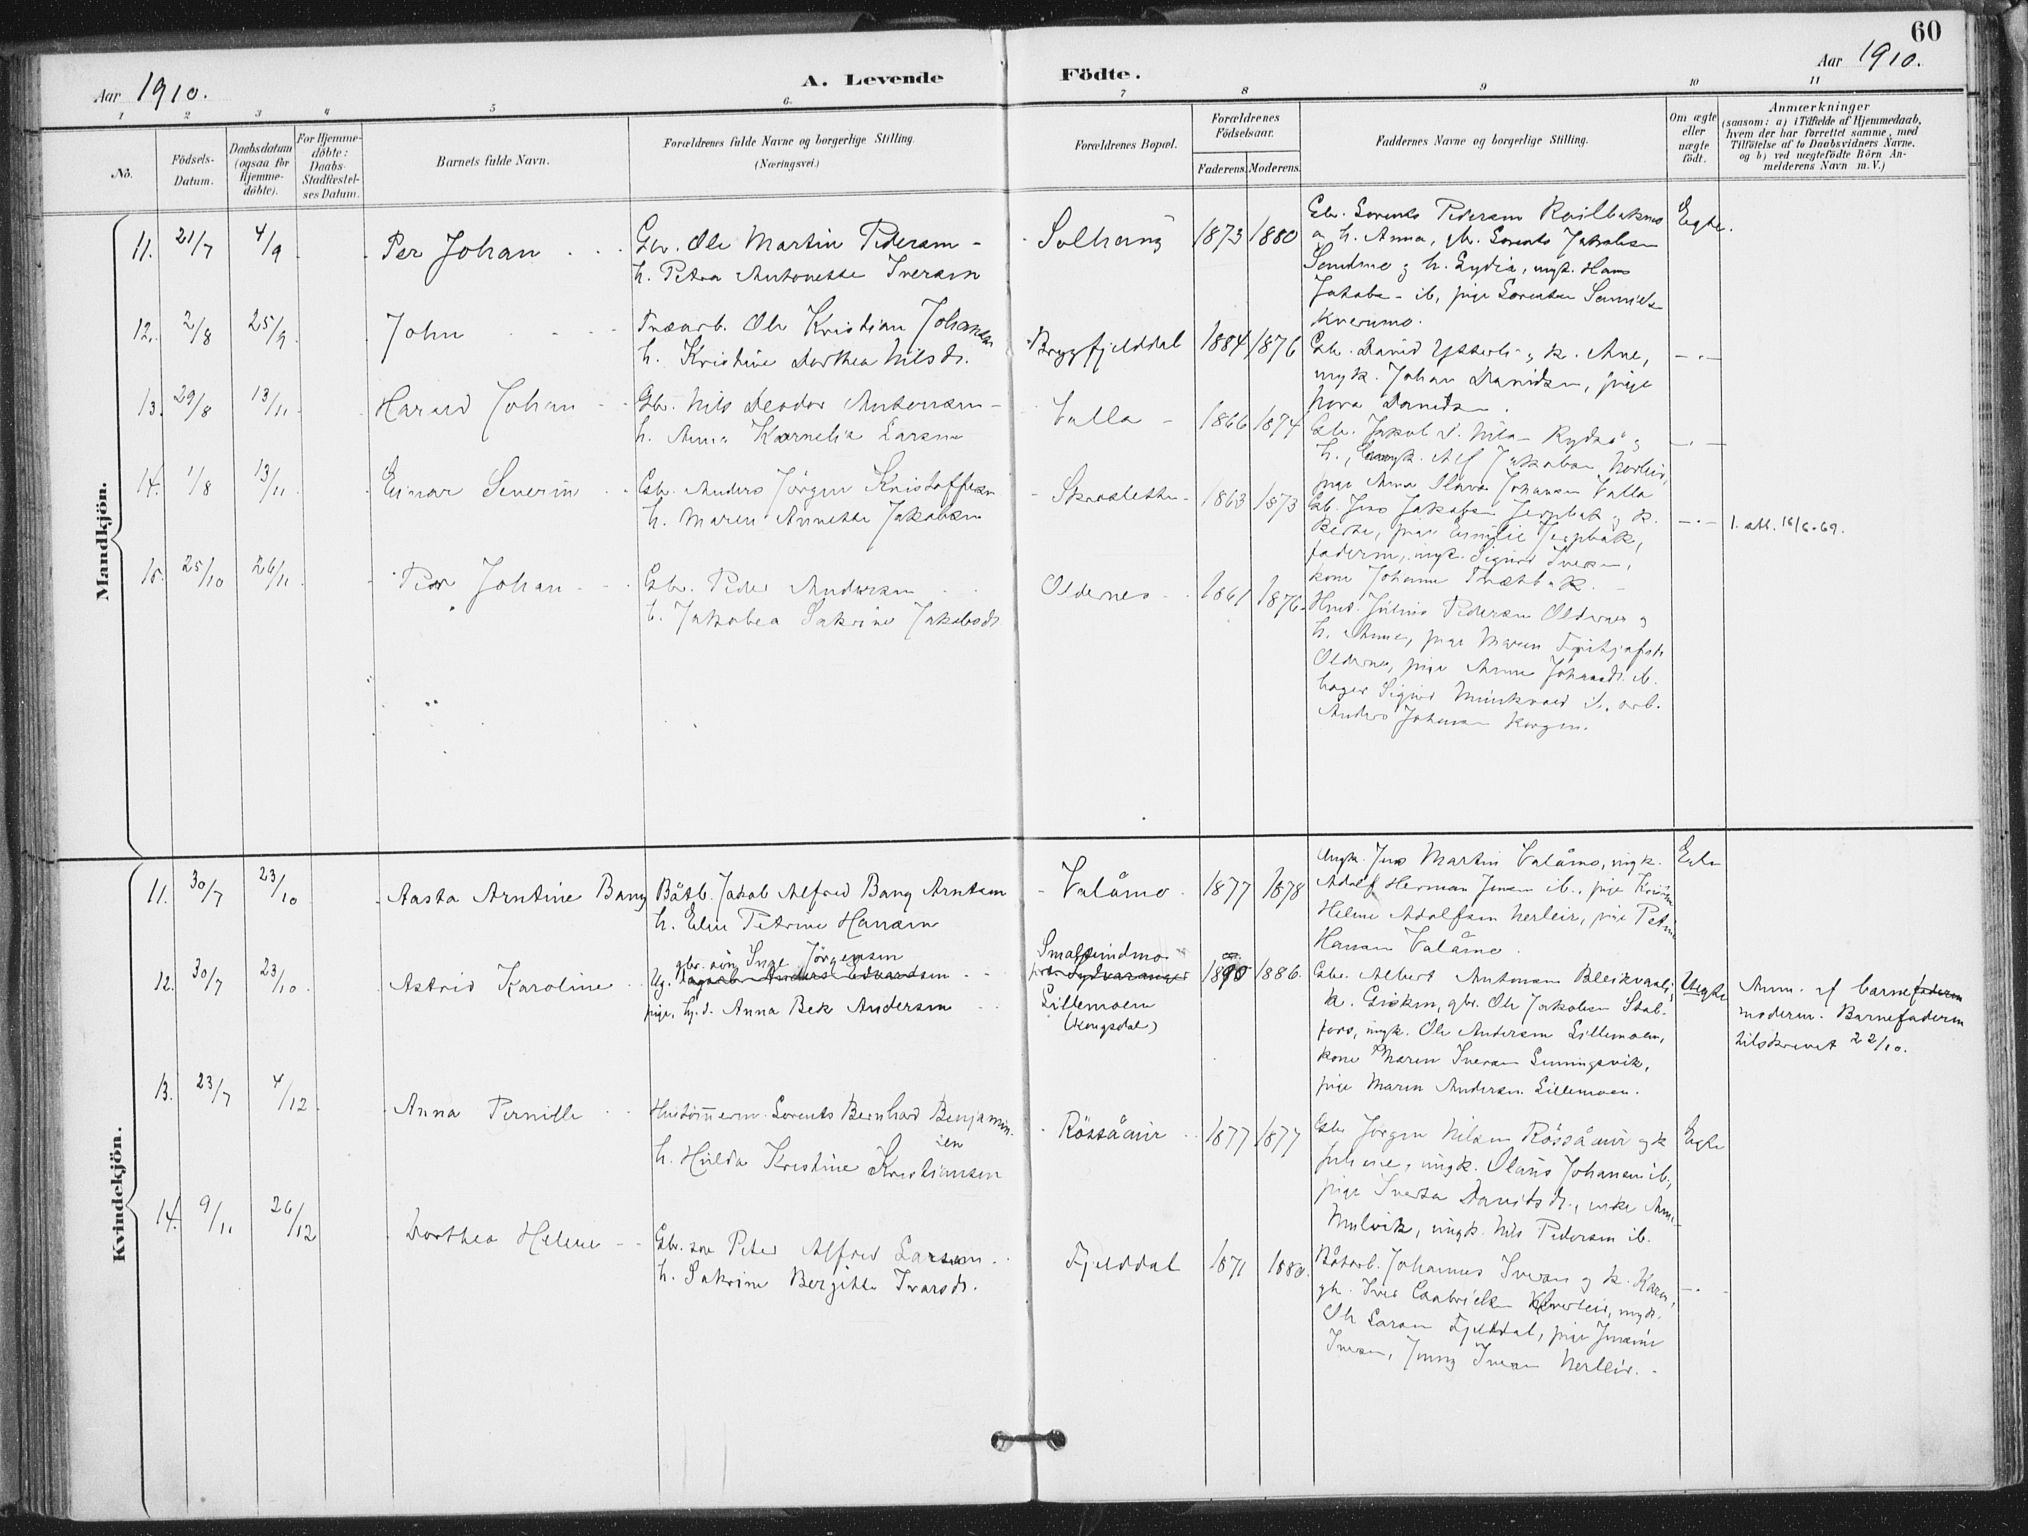 60
Aar 1910.
A. Levende Födte.
Aar 1910.
1 2 3 4 5 6. 7 8 9 10 11
Nò.
Födsels-Datum.
Daabsdatum (ogsaa for Hjemme-döbte).
For Hjemme-döbte: Daabs Stadfæstel-ses Datum.
Barnets fulde Navn.
Forældrenes fulde Navne og borgerlige Stilling. (Næringsvei.)
Forældrenes Bopæl.
Forældrenes Födselsaar.
Faderens. Moderens.
Faddernes Navne og borgerlige Stilling.
Om ægte eller uægte födt.
Anmærkninger
(saasom: a) i Tilfælde af Hjemmedaab, hvem der har forrettet samme, med Tilföielse af to Daabsvidners Navne, og b) ved uægtefödte Börn An-melderens Navn m. V.)
Mandkjön.
11. 21/7 4/9 Per Johan
Gbr. Ole Martin Pedersen -
h. Petra Antonette Iversen
Solhaug 1873 1880
Gbr. Lorents Pedersen
h. Anna, gbr. Lorents Jakobsen
h. Lydia, ungk. Hans
ib, pige
Ægte.
12. 2/8 25/9 John
Træarb. Ole Kristian Johansen
h. Kristine Dorthea Nilsdr.
Bryggfjelddal 1884 1876
Gbr. David Ytterli og k. Ane,
ungk. Johan Davidsen, pige
-.-
13. 29/8 13/11 Harald Johan
Gbr. Nils Theodor Antonsen -
h. Anna Kornelia Larsen
Valla - 1866 1874
Gbr. Jakob
ungk. Alf Jakobsen Nerleir,
pige Anna Johansen Valla
-.-
14. 1/8 13/11 Einar Severin
Gbr. Anders Jörgen Kristoffersen
h. Maren Annette Jakobsen
Skraaletten - 1863 1873
Gb. Jens Jakobsen Jerpbak og k.
pige Emilie Jerpbak,
faderen, ungk. Sigurd Iversen,
kone Johanne
-.- 1. att. 16/6-69.
15. 25/10 26/11 Peder Johan
Gbr. Peder Andersen
h. Jakobea Sakrine Jakobsdr
Oldernes - 1861 1876
Hmd. Julius Pedersen Oldernes og
h. Anna, pige Maren Fritjofsdr
Oldernes, pige Anna Johansdr. ib.
bager Sigurd Munkvold ib., arb.
Anders Johansen Korgen.
Kvindekjön.
11. 30/7 23/10 Aasta Arntine Bang
Båtb. Jakob Alfred Bang Arntsen
h. Elen Petrine Hansen
Valåmo. 1877 1878
Ungk. Jens Martin Valåmo, ungk.
Adolf Herman Jensen ib., pige Kristine
Helene Adolfsen Nerleir, pige Petrine
Hansen Valåmo.
Ægte
12. 30/7 23/10 Astrid Karoline
gbr. sön Inge Jörgensen
Ug. Dagarb. Anders Edvardsen
pige, tj.d. Anna Bek Andersen
Smalsundmo
Sydvaranger
Lillemoen
(Kongsdal)
1890 1886.
Gbr. Albert Antonsen Bleikvasli,
k. Gisken, gbr. Ole Jakobsen Stab-
fors, ungk. Ole Andersen Lillemoen,
kone Maren Iversen Lenningsvik,
pige Maren Andersen Lillemoen.
Uægte
Anm. af barnefaderen
moderen. Barnefaderen
tilskrevet 22/10.
13. 23/7 4/12 Anna Pernille
Hustömmerm. Lorents Bernhard Benjamin-
sen
h. Hulda Kristine Kristiansen
Rössåaur 1877 1877
Gbr. Jörgen Nilsen Rössåaur og k
ungk. Olaus Johansen ib,
pige Iversa Davidsdr., enke Anne
Mulvik, ungk. Nils Pedersen ib.
Ægte
14. 9/11 26/12 Dorthea Helene -
Gbr. sön Peter Alfred Larsen.
h. Sakrine Bergitte Ivarsdr.
Fjelddal 1871 1880.
Båtarb. Johannes Iversen og k. Karen,
gbr. Iver Gabrielsen Nerleir, ungk.
Ole Larsen Fjelddal, pige
Iversen, Jenny Iversen Nerleir. -
-.-